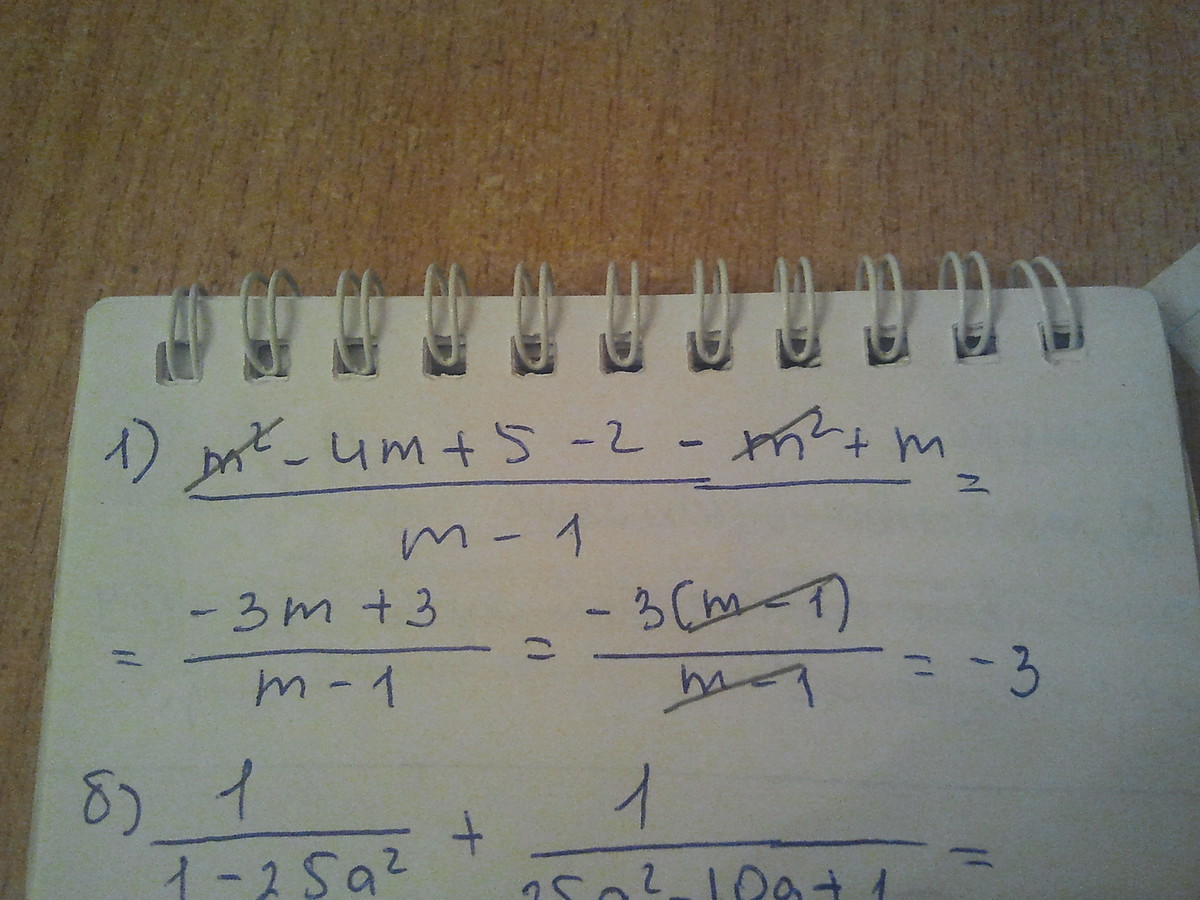 1) m² - 4m + 5 - 2 - m² + m =
m - 1
= -3m + 3 = -3(m - 1) = -3
m - 1 m - 1
б) 1 + 1 =
1 - 25a² 25a² - 10a + 1